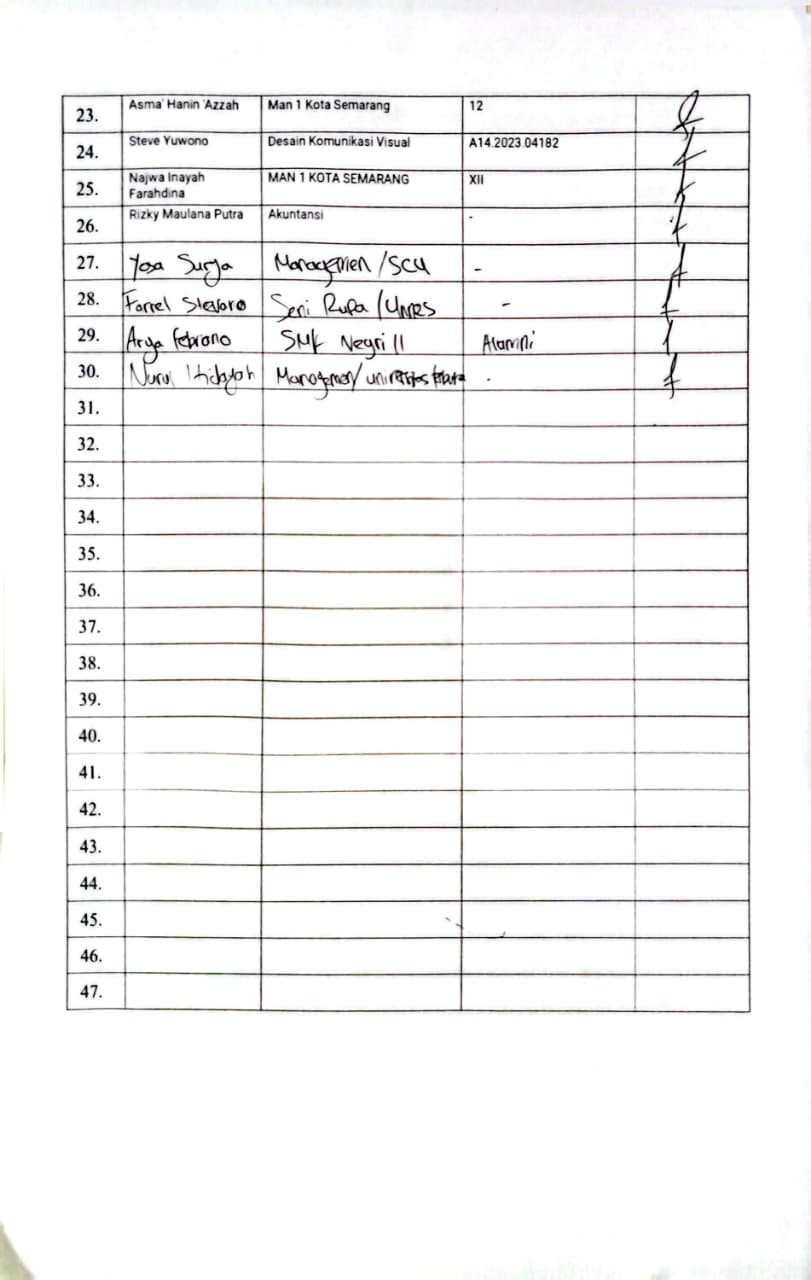 23. Asma' Hanin 'Azzah Man 1 Kota Semarang 12
24. Steve Yuwono Desain Komunikasi Visual A14.2023.04182
25. Najwa Inayah Farahdina MAN 1 KOTA SEMARANG XII
26. Rizky Maulana Putra Akuntansi -
27. Yosa Surya Managemen / SCU -
28. Farrel Seni Rupa / UNNES -
29. Arya Febriano SMK Negri 11 Alamni
30. Nurul Hidayah Managemen/
31.
32.
33.
34.
35.
36.
37.
38.
39.
40.
41.
42.
43.
44.
45.
46.
47.